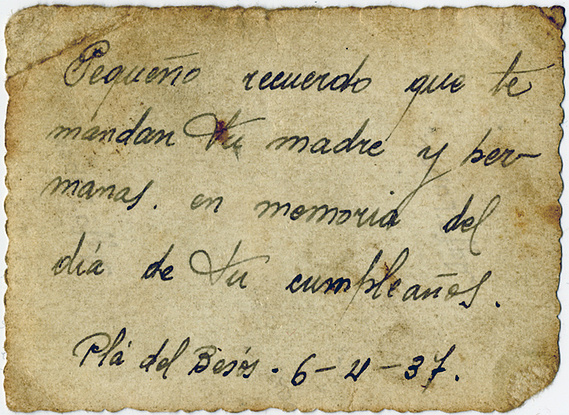 Pequeño recuerdo que te
mandan tu madre y her-
manas. en memoria del
día de tu cumpleaños.
Plá del Besós. 6-4-37.